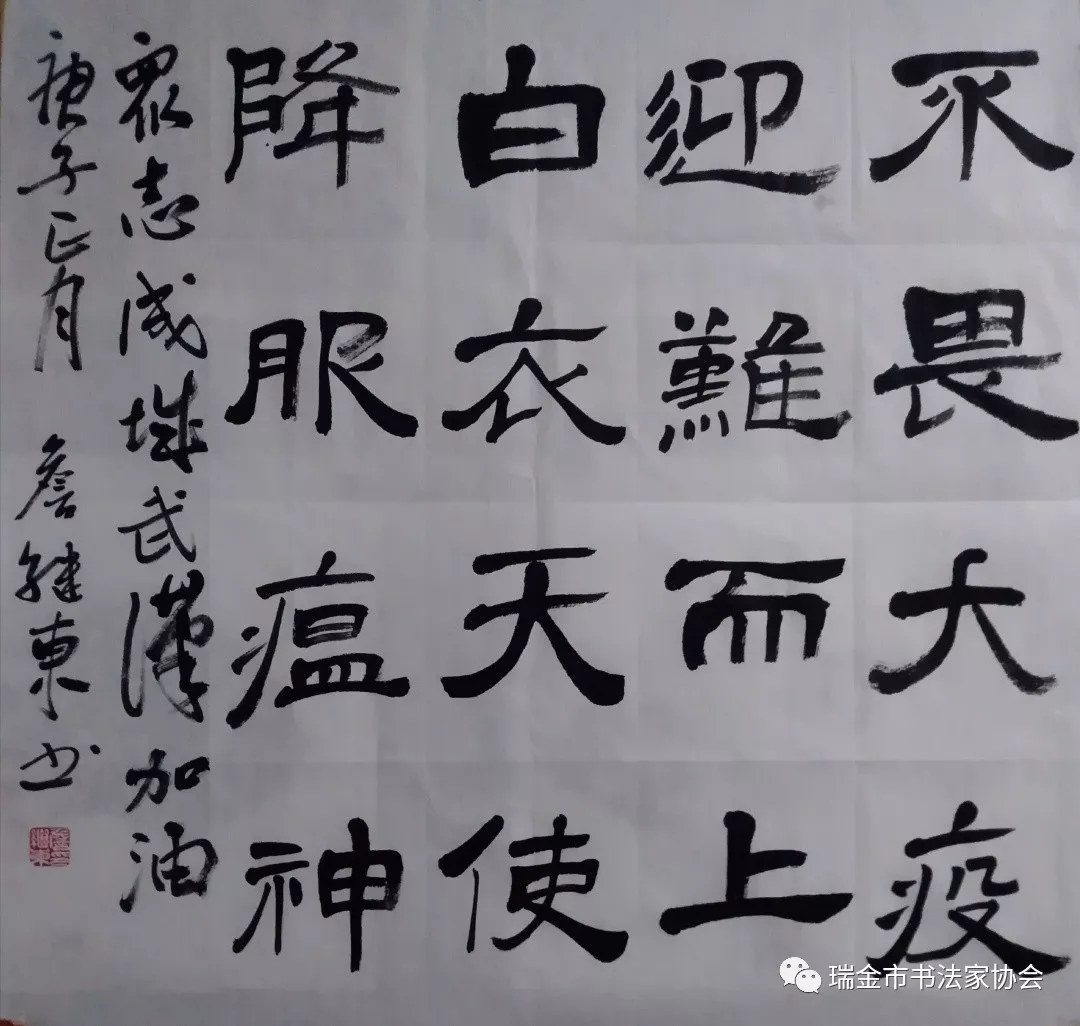 不畏大疫
迎難而上
白衣天使
降服瘟神
眾志成城武漢加油
庚子正月 詹繼東书
瑞金市书法家协会